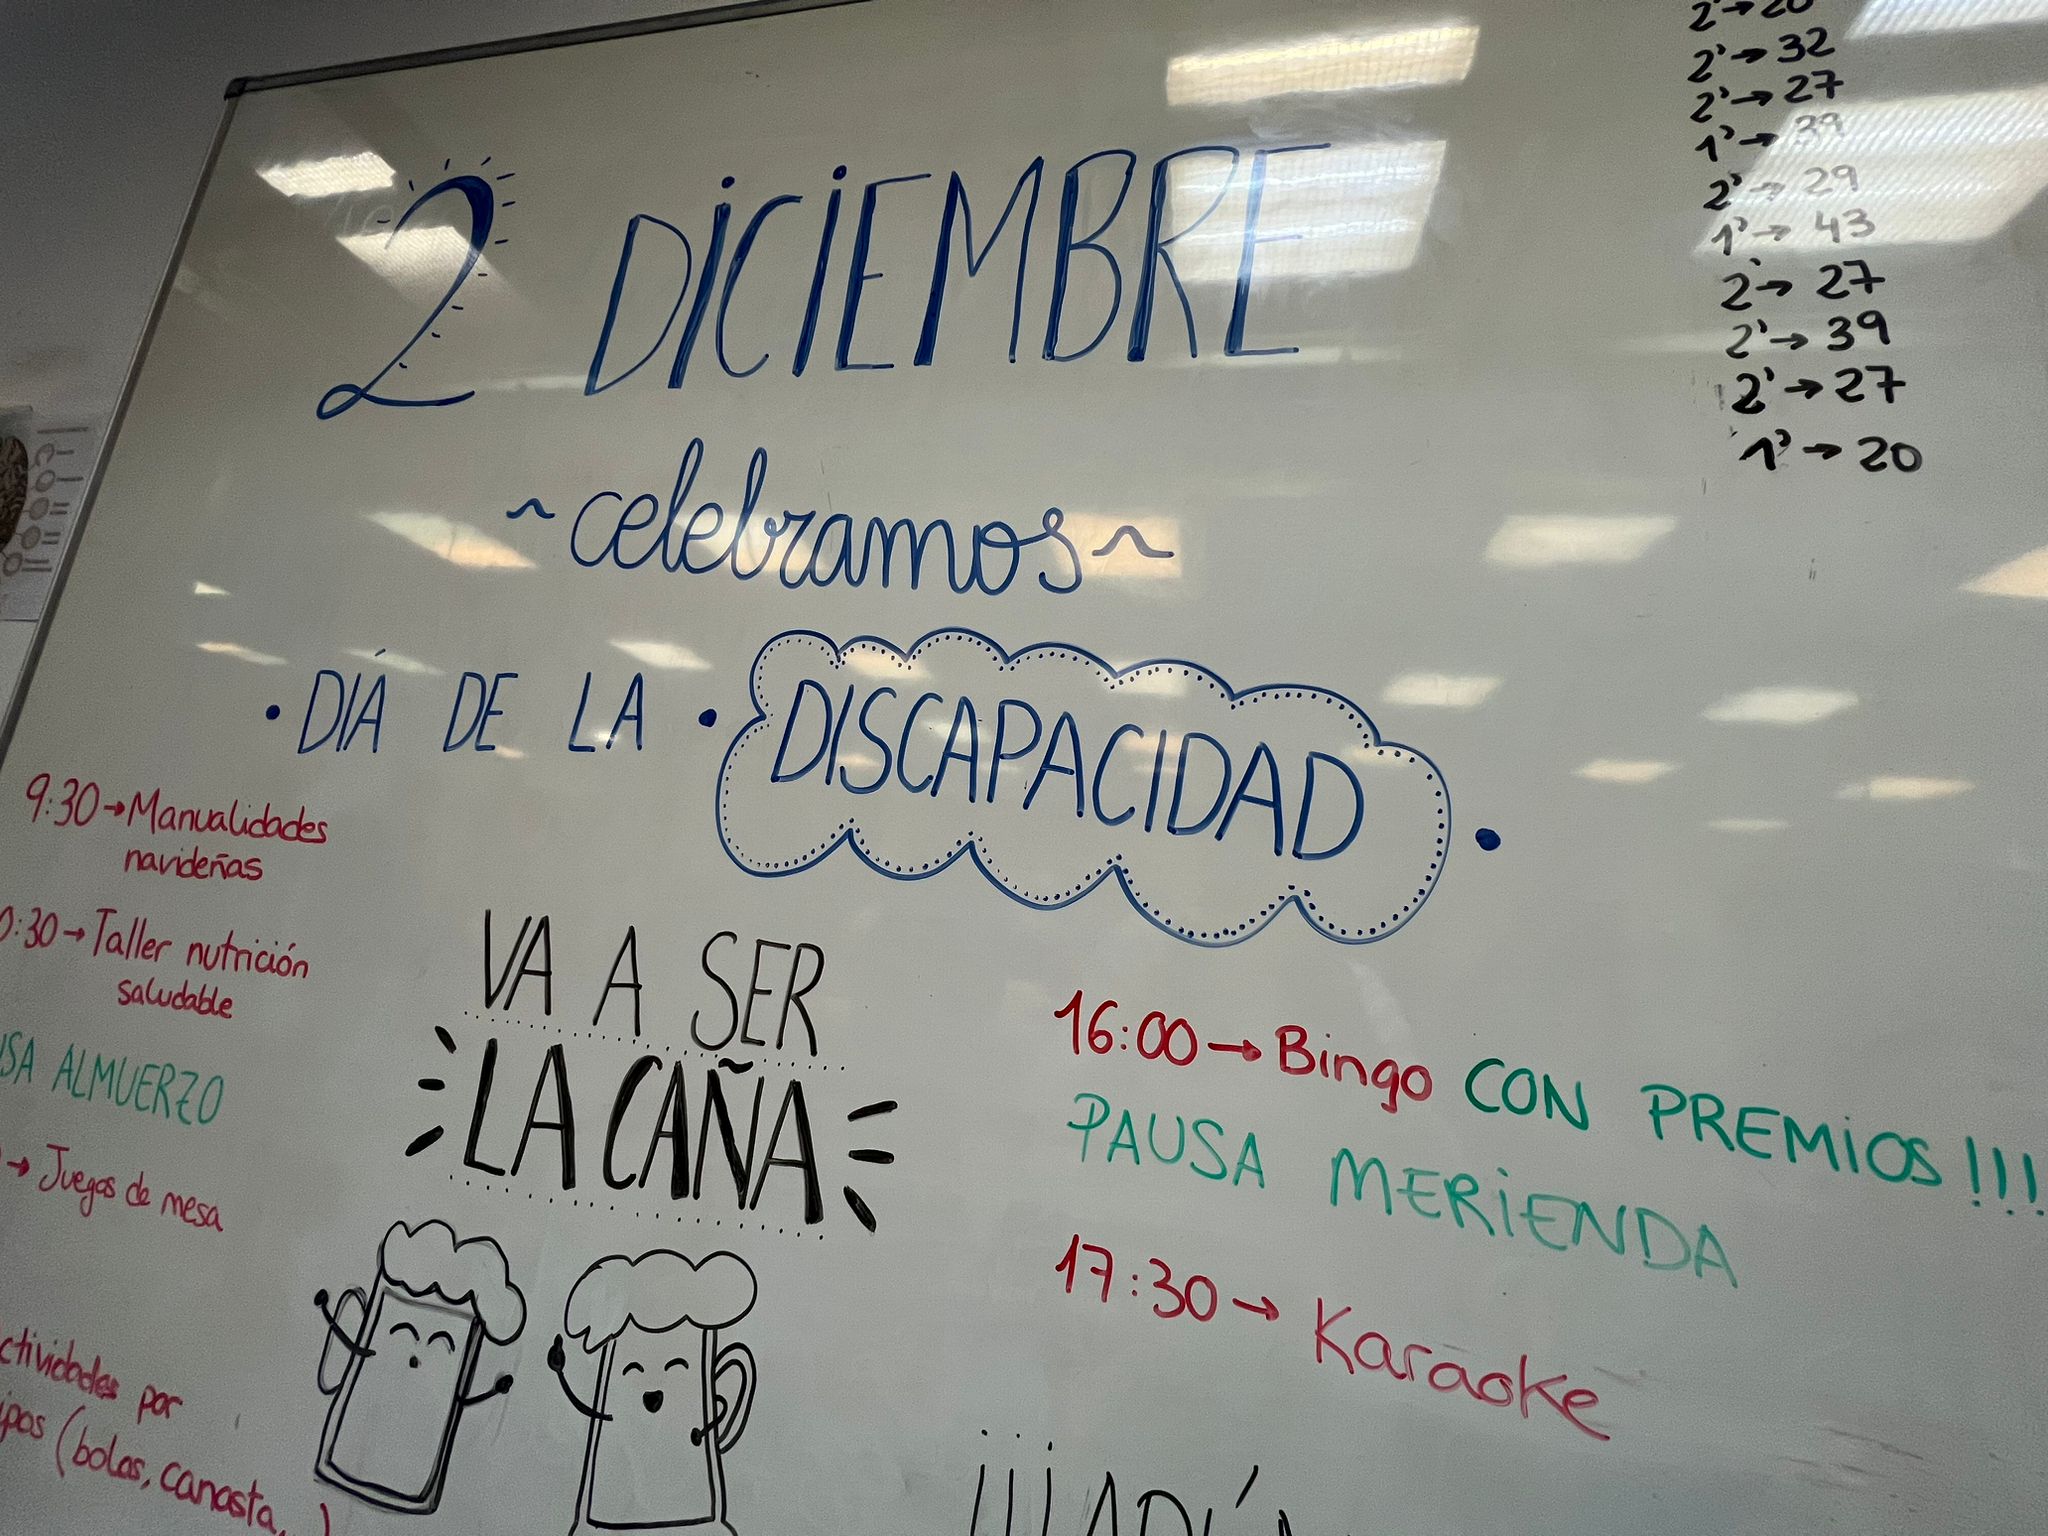 2 DICIEMBRE
~celebramos~
· DÍA DE LA · DISCAPACIDAD ·
9:30→Manualidades
navideñas
0:30→Taller nutrición
saludable
USA ALMUERZO
→ Juegos de mesa
ctividades por
ipos (bolos, canasta,...)
VA A SER
LA CAÑA
16:00→Bingo CON PREMIOS!!!
PAUSA MERIENDA
17:30→ Karaoke
2'→20
2'→32
2'→27
1'→39
2'→29
1'→43
2'→27
2'→39
2'→27
1'→20